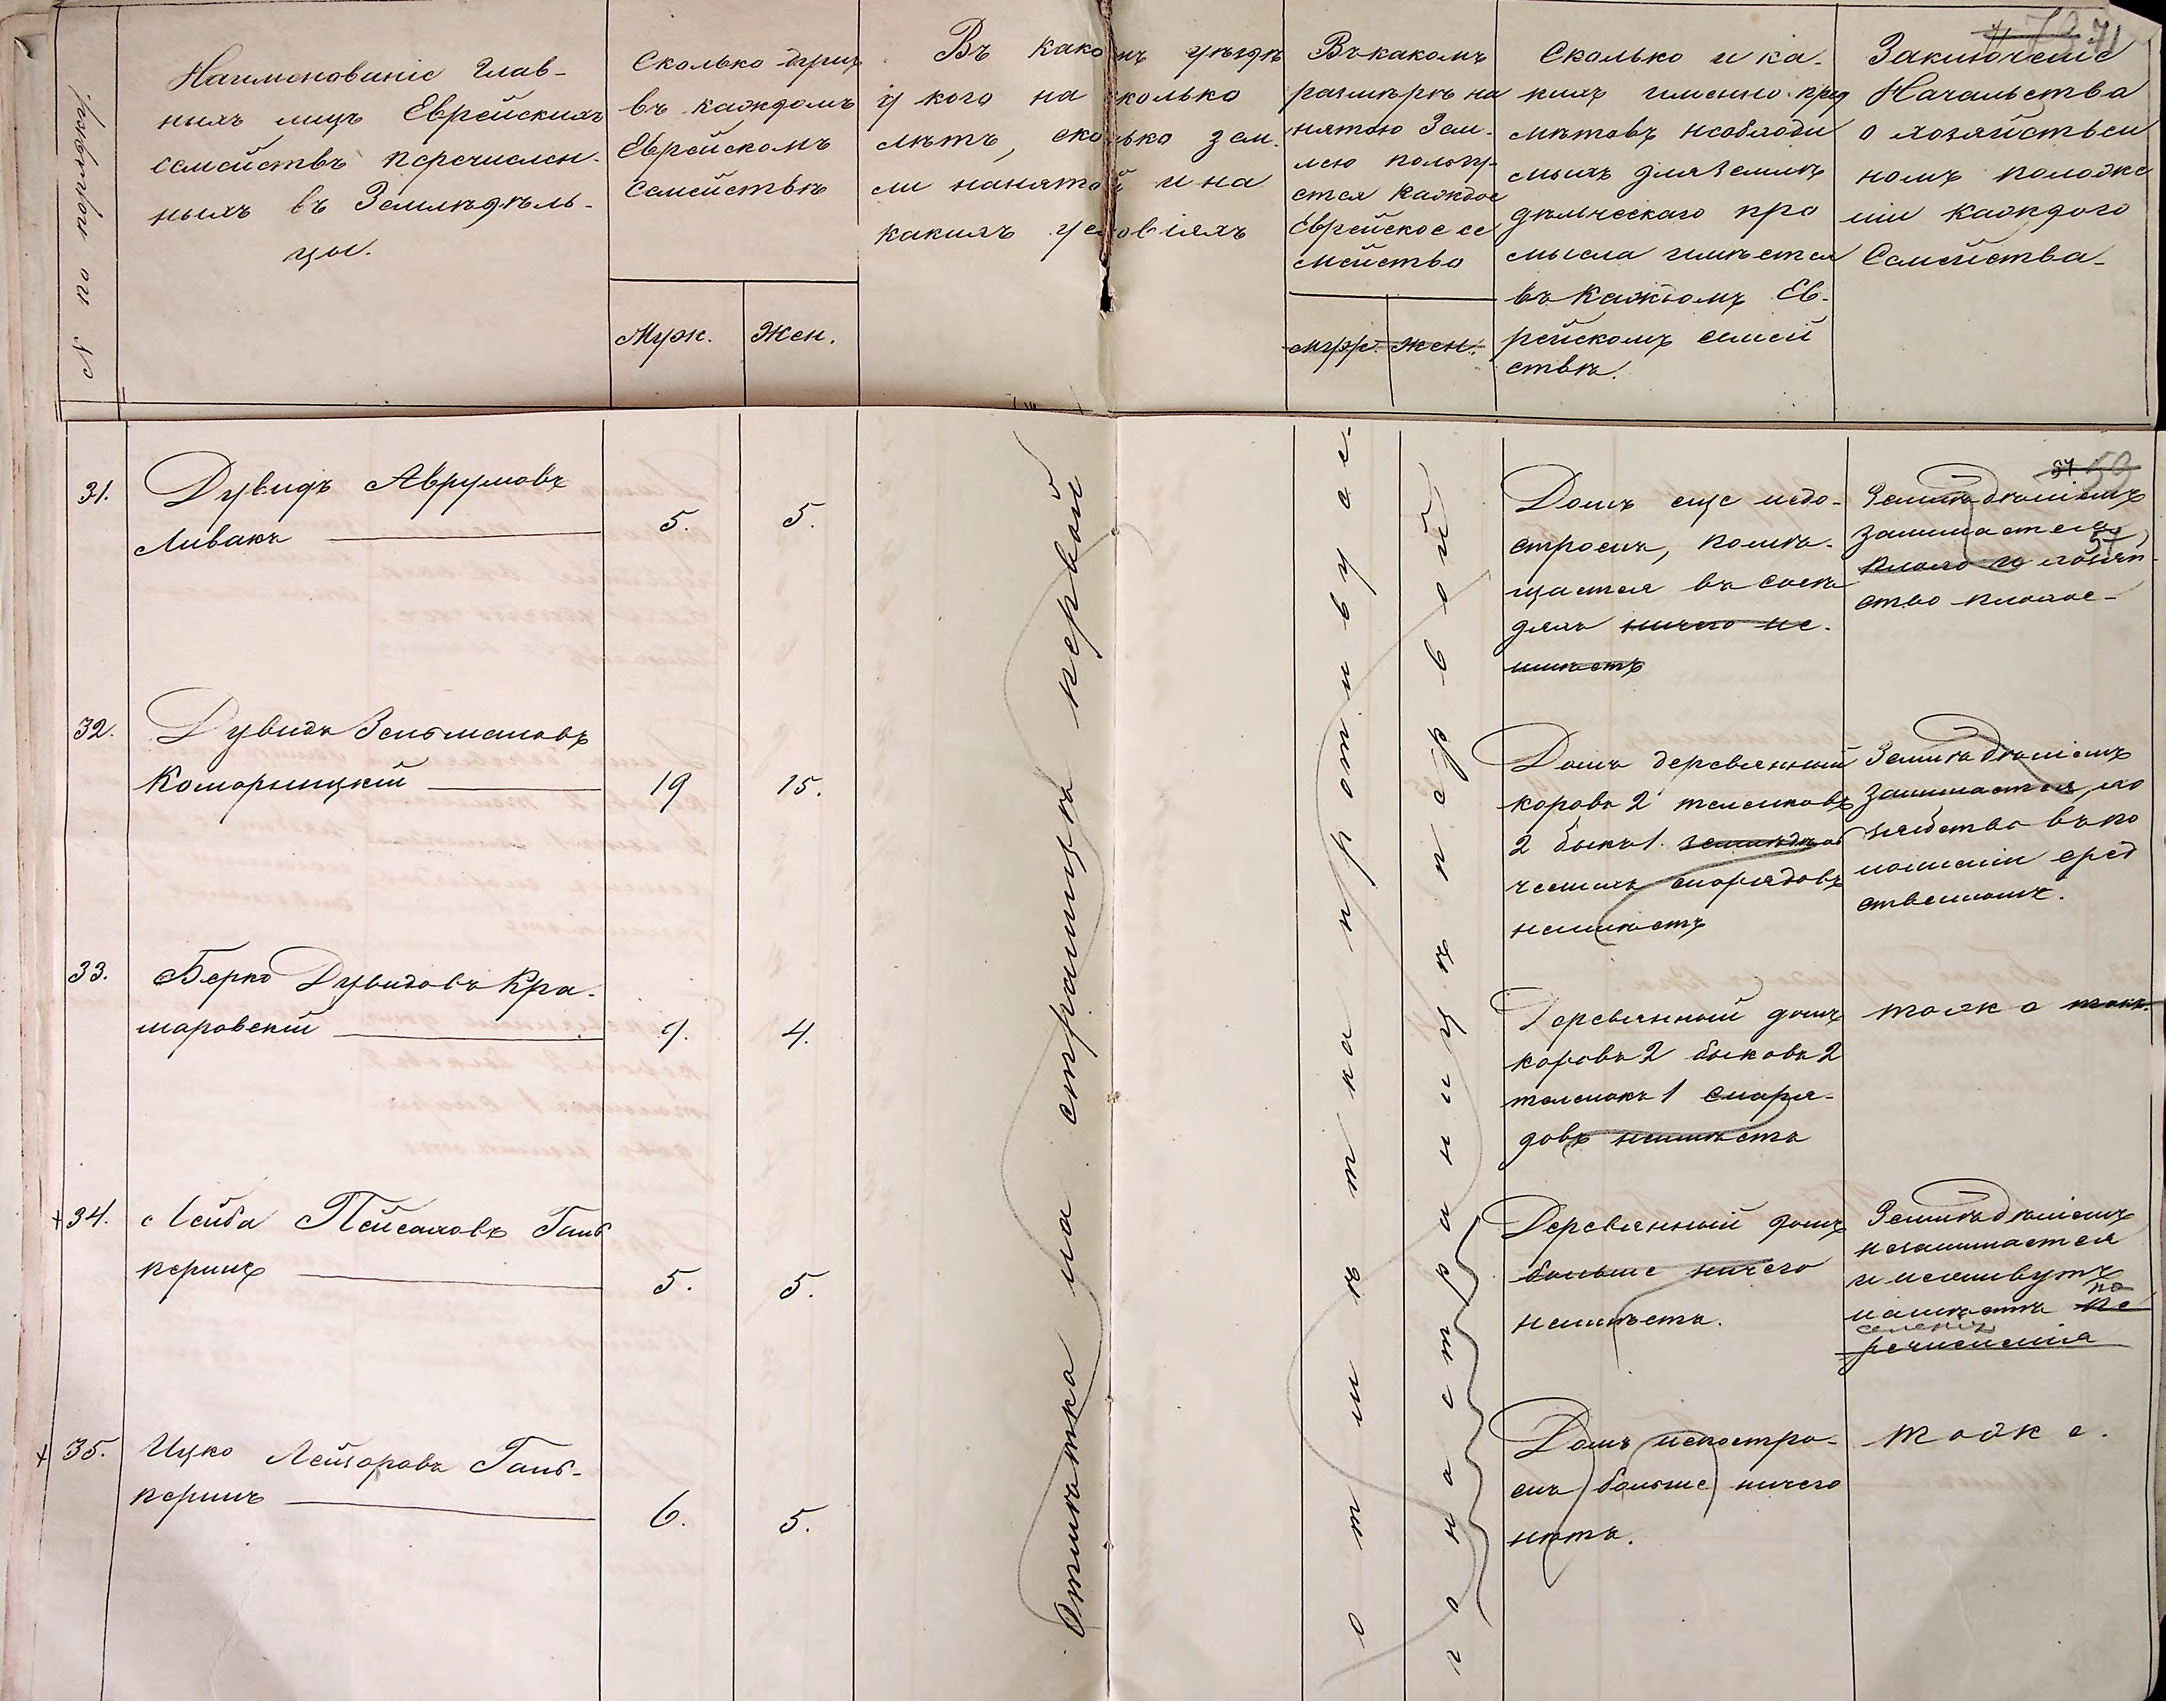 № по порядку.
Наименованіе Глав-
ныхъ лицъ Еврейскихъ
семействъ перечислен-
ныхъ въ Земледѣль-
цы.
Сколько душъ
въ каждомъ
Еврейскомъ
Семействѣ
Муж.
Жен.
Въ какомъ уѣздѣ
у кого на сколько
лѣтъ, сколько зем-
ли нанято и на
какихъ условіяхъ
Въ какомъ
размѣрѣ на
нятою Зем-
лею пользу-
ется каждое
Еврейское се
мейство
муж.
жен.
Сколько и ка-
кихъ именно пред
мѣтовъ необходи
мыхъ для земле
дѣльческаго про
мысла имѣется
въ каждомъ Ев-
рейскомъ семей
ствѣ.
71
Заключеніе
Начальства
о хозяйствен
номъ положе
ніи каждого
Семейства
31.
Дувидъ Аврумовъ
Ливакъ
5.
5.
Домъ еще недо-
строенъ, помѣ-
щается въ сосѣ
дяхъ ничего не
имѣетъ
57. 59
Земледѣліемъ
занимается,
57
плохо хозяй-
ство плохое
32.
Дувидъ Зельмановъ
Комарницкій
19
15.
Домъ деревянный
коровъ 2 теленковъ
2 быкъ 1. земледѣль
ческихъ снарядовъ
неимѣетъ
Земледѣліемъ
занимается, хо
зяйство въ по
ложеніи сред
ственномъ.
33.
Берко Дувидовъ Кра-
маровскій
4.
Деревянный домъ
коровъ 2 быковъ 2
теленокъ 1 Снаря-
довъ неимѣетъ
тоже
+34.
Лейба Пейсаховъ Галь
перинъ
5.
5.
Деревянный домъ
больше ничего
неимѣетъ.
Земледѣліемъ
незанимается
и неживутъ
на мѣстѣ пе
по
селенія
речисленія
+ 35.
Ицко Лейзоровъ Галь-
перинъ
6.
5.
Домъ непостро-
енъ больше ничего
нѣтъ.
тоже.
Отмѣтка на страницѣ первой
отмѣтка противу се-
го на страницѣ первой